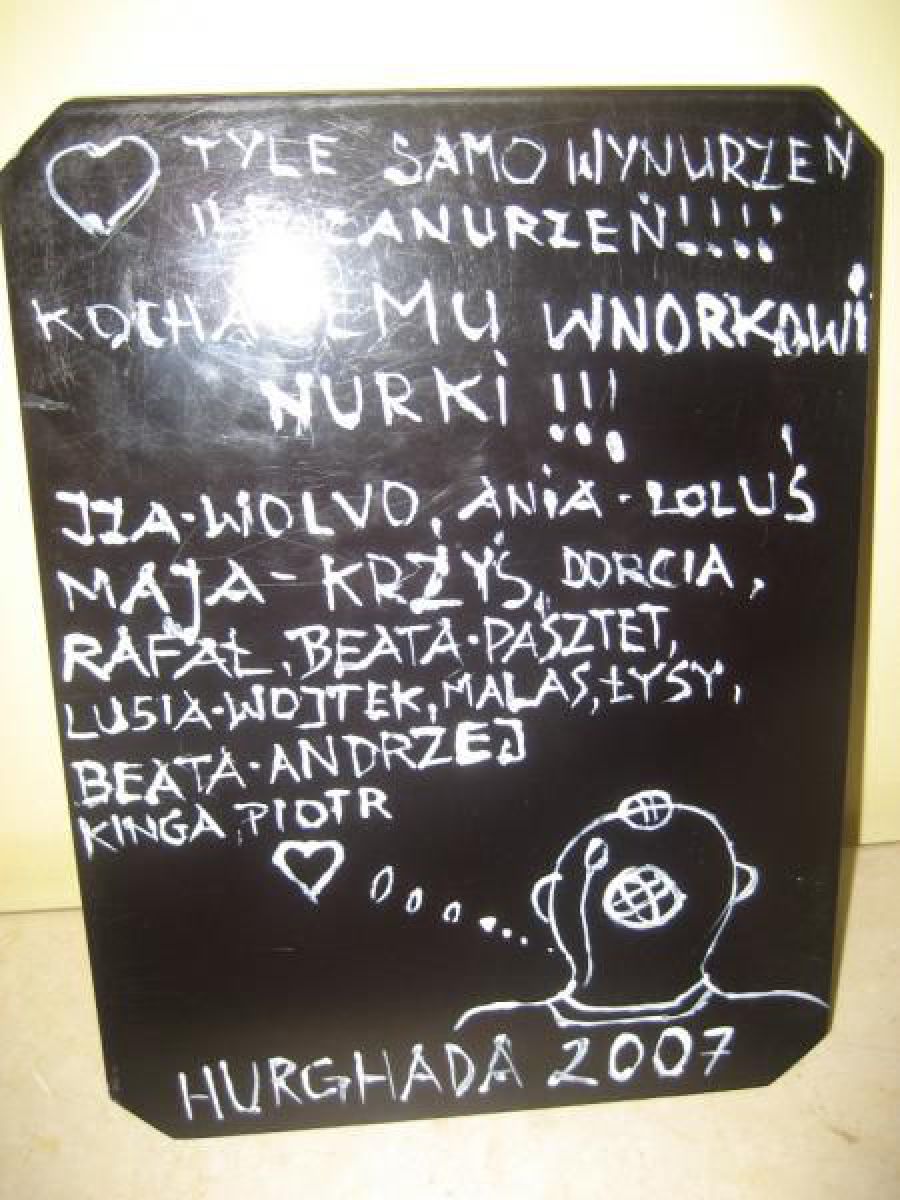 TYLE SAMO WYNURZEŃ
ZANURZEŃ!!!!
WNORKOWI
NURKI !!!
IZA-WOLVO, ANiA-LOLUŚ
MAJA-KRZYŚ, DORCIA,
RAFAŁ, BEATA-PASZTET,
LUSIA-WOJTEK, MALAS, ŁYSY,
BEATA-ANDRZEJ
KINGA, PIOTR
HURGHADA 2007